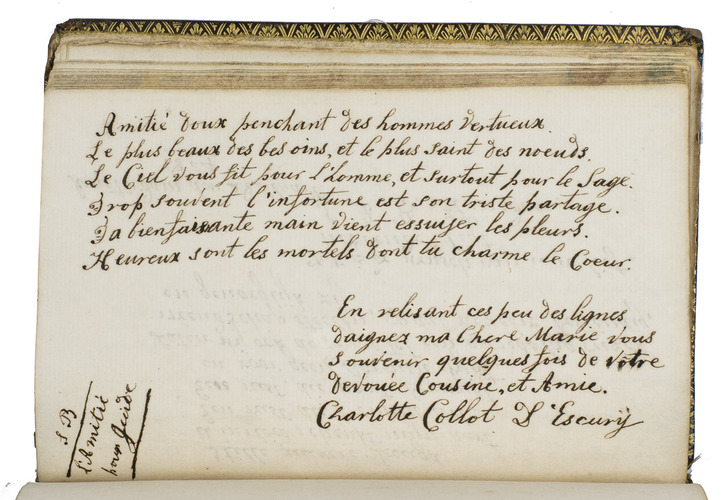 Amitié doux penchant des hommes vertueux.
Le plus beaux des besoins, et le plus saint des noeuds.
Le Ciel vous fit pour l'homme, et surtout pour le Sage.
Trop souvent l'infortune est son triste partage.
Ta bienfaisante main vient essuijer les pleurs.
Heureux sont les mortels dont tu charme le Coeur.
En relisant ces peu des lignes
daignez ma Chere Marie vous
souvenir quelques fois de votre
devouee Cousine, et Amie.
Charlotte Collot D'Escurij
S B
l'Amitié
pour Guide